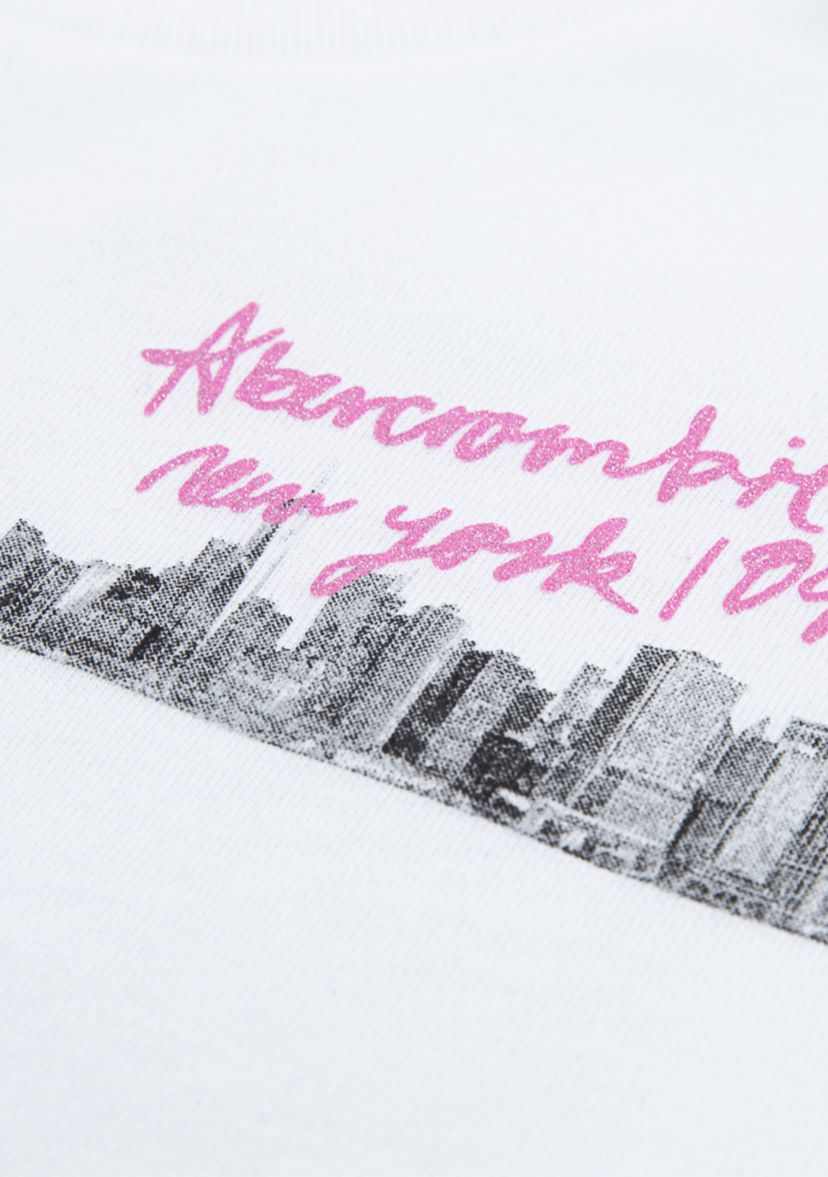 Abercrombie
new york / 09